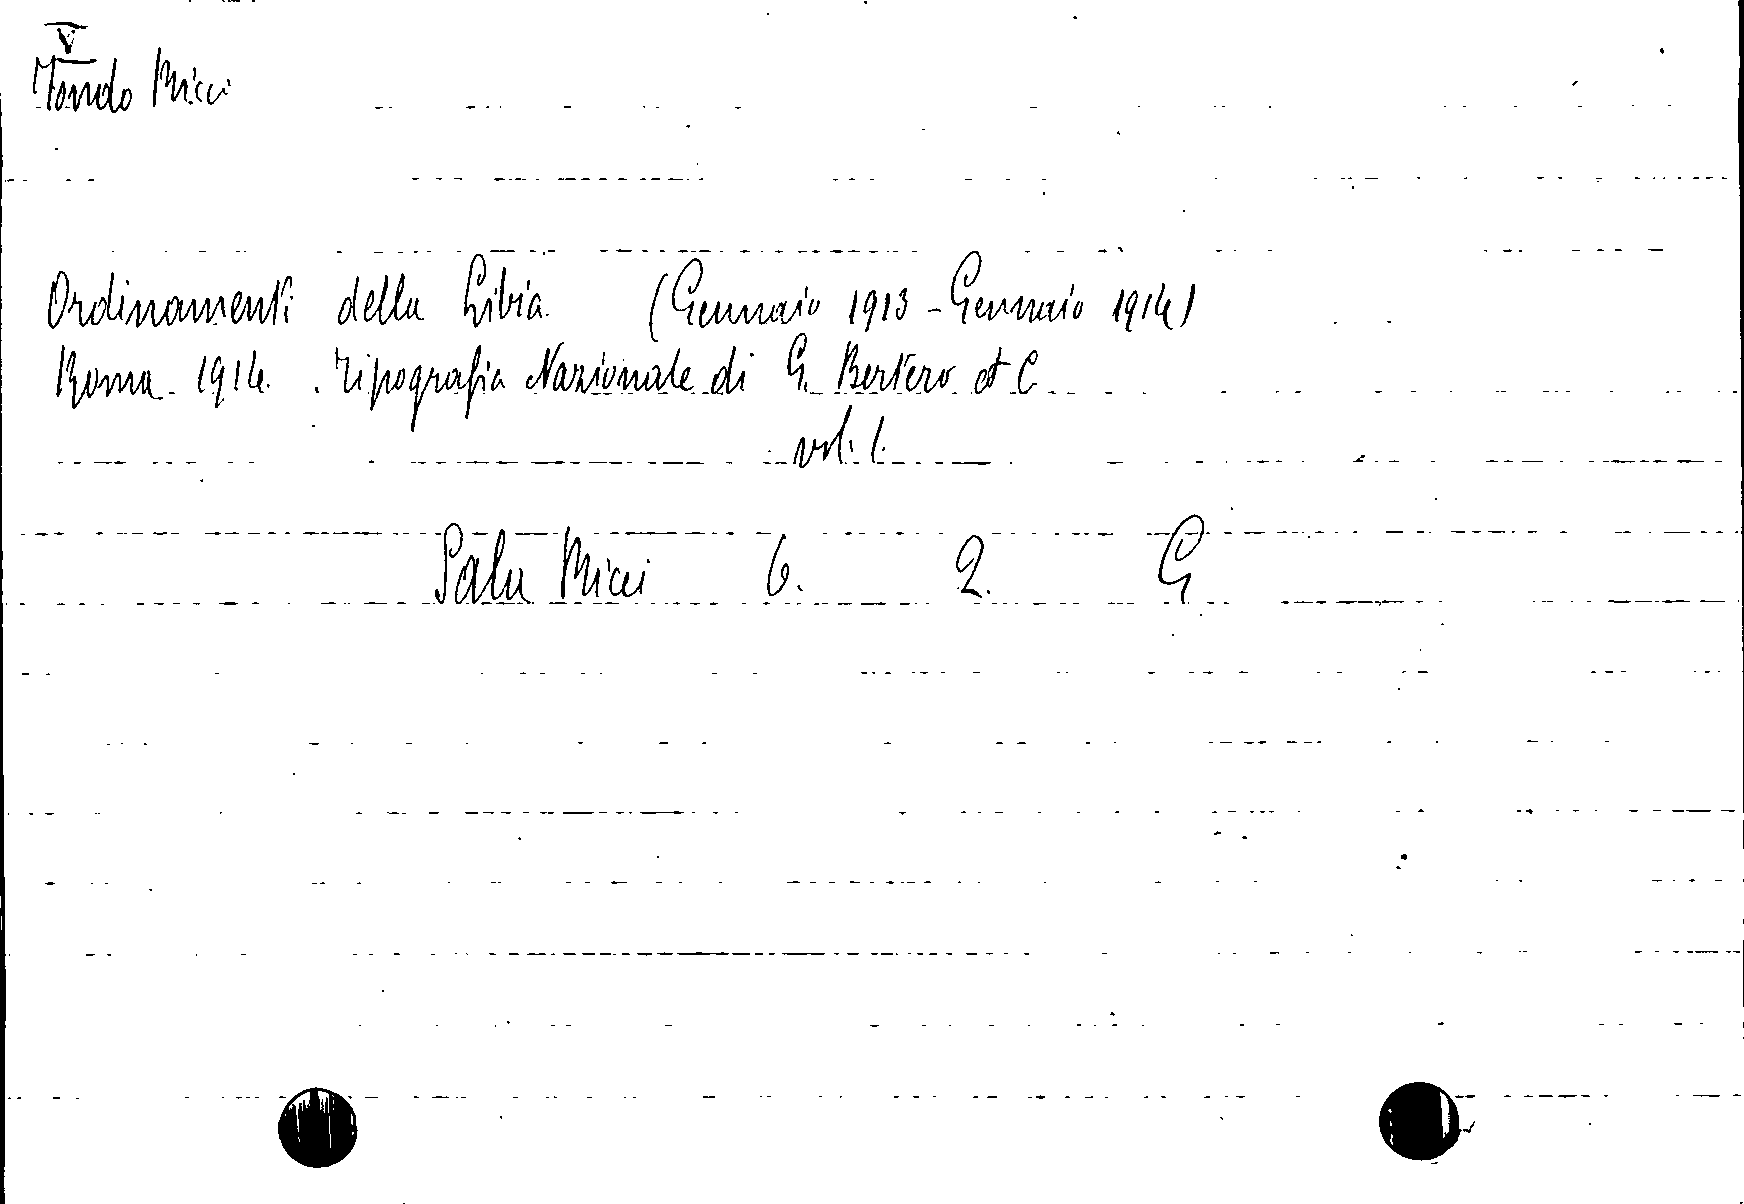 V
Fondo Ricci
Ordinamenti della Libia (Gennaio 1913 - Gennaio 1914)
Roma 1914. Tipografia Nazionale di G. Bertero et C.
vol. 1.
Sala Ricci 6. 2. G